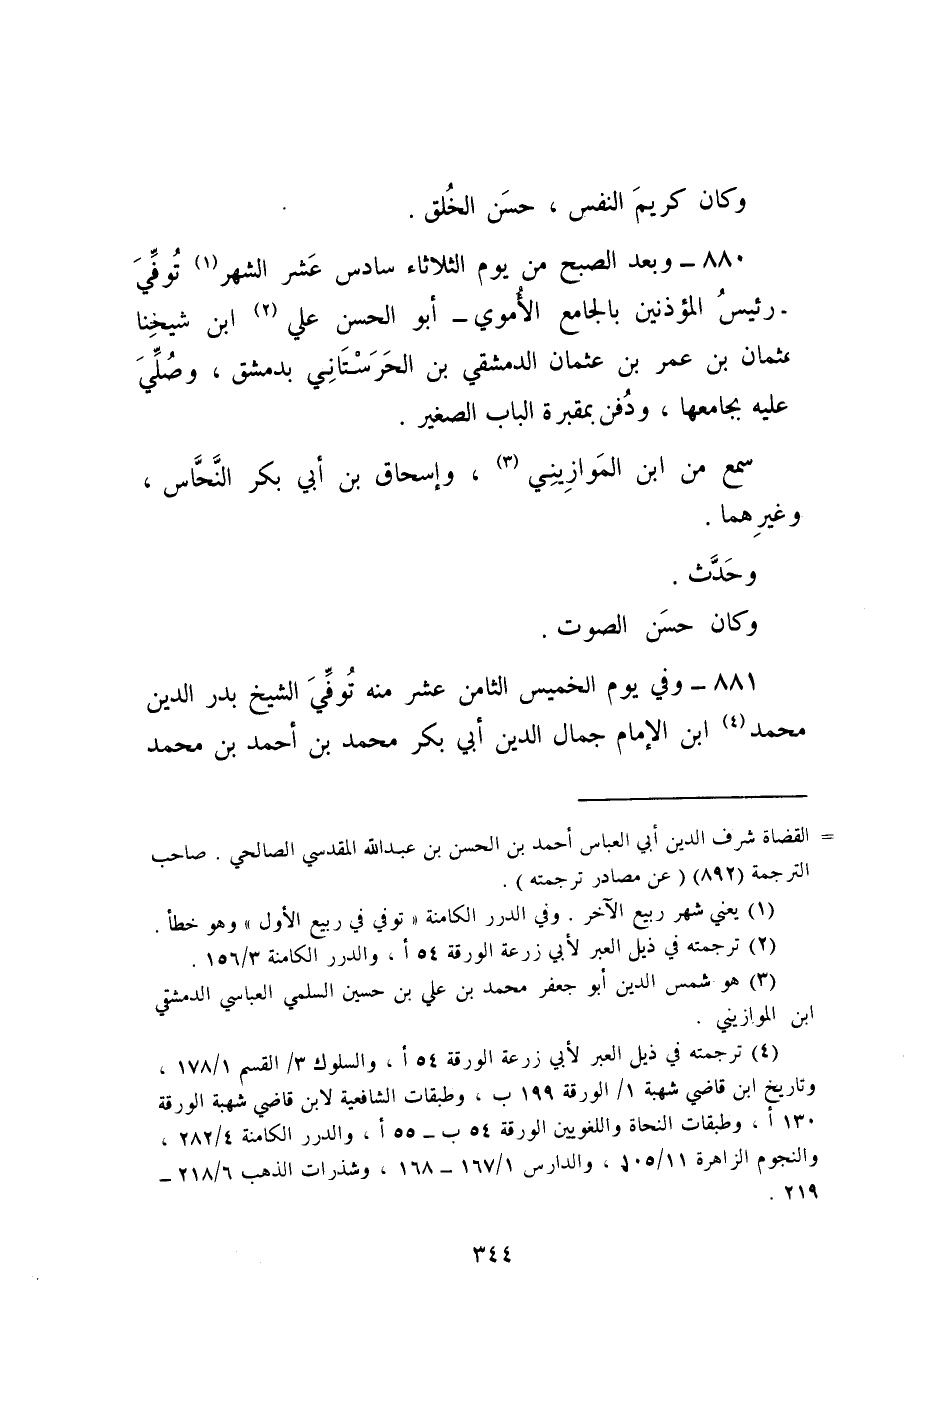 وكان كريمَ النفس ، حسَن الخُلق .
٨٨٠ ــ وبعد الصبح من يوم الثلاثاء سادس عَشر الشهر(١) تُوفِّيَ
ـ رئيسُ المؤذنين بالجامع الأُموي ــ أبو الحسن علي (٢) ابن شيخِنا
عثمان بن عمر بن عثمان الدمشقي بن الحَرَسْتَانِي بدمشق ، وصُلِّيَ
عليه بجامعها ، ودُفن بمقبرة الباب الصغير .
سمع من ابن المَوازِينِي (٣) ، وإسحاق بن أبي بكر النَّحَّاس ،
وغيرِهما .
وحَدَّث .
وكان حسَن الصوت .
٨٨١ ــ وفي يوم الخميس الثامن عشر منه تُوفِّيَ الشيخ بدر الدين
محمد(٤) ابن الإمام جمال الدين أبي بكر محمد بن أحمد بن محمد
= القضاة شرف الدين أبي العباس أحمد بن الحسن بن عبدالله المقدسي الصالحي . صاحب
الترجمة (٨٩٢) ( عن مصادر ترجمته ) .
(١) يعني شهر ربيع الآخر . وفي الدرر الكامنة « توفي في ربيع الأول » وهو خطأ .
(٢) ترجمته في ذيل العبر لأبي زرعة الورقة ٥٤ أ ، والدرر الكامنة ١٥٦/٣ .
(٣) هو شمس الدين أبو جعفر محمد بن علي بن حسين السلمي العباسي الدمشقي
ابن الموازيني .
(٤) ترجمته في ذيل العبر لأبي زرعة الورقة ٥٤ أ ، والسلوك ٣/ القسم ١٧٨/١ ،
وتاريخ ابن قاضي شهبة ١/ الورقة ١٩٩ ب ، وطبقات الشافعية لابن قاضي شهبة الورقة
١٣٠ أ ، وطبقات النحاة واللغويين الورقة ٥٤ ب ــ ٥٥ أ ، والدرر الكامنة ٢٨٢/٤ ،
والنجوم الزاهرة ١٠٥/١١ ، والدارس ١٦٧/١ ــ ١٦٨ ، وشذرات الذهب ٢١٨/٦ ــ
٢١٩ .
٣٤٤